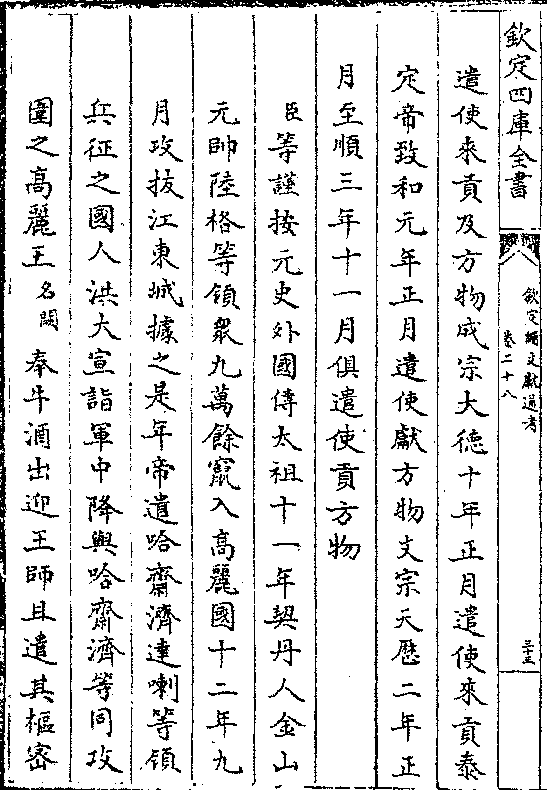 欽定四庫全書
欽定續文獻通考
卷二十八
遣使來貢及方物成宗大德十年正月遣使來貢泰
定帝致和元年正月遣使獻方物文宗天歷二年正
月至順三年十一月俱遣使貢方物
臣等謹按元史外國傳太祖十一年契丹人金山
元帥陸格等領衆九萬餘竄入高麗國十二年九
月攻拔江東城據之是年帝遣哈齋濟達喇等領
兵征之國人洪大宣詣軍中降與哈齋濟等同攻
圍之高麗王名闕奉牛酒出迎王師且遣其樞密